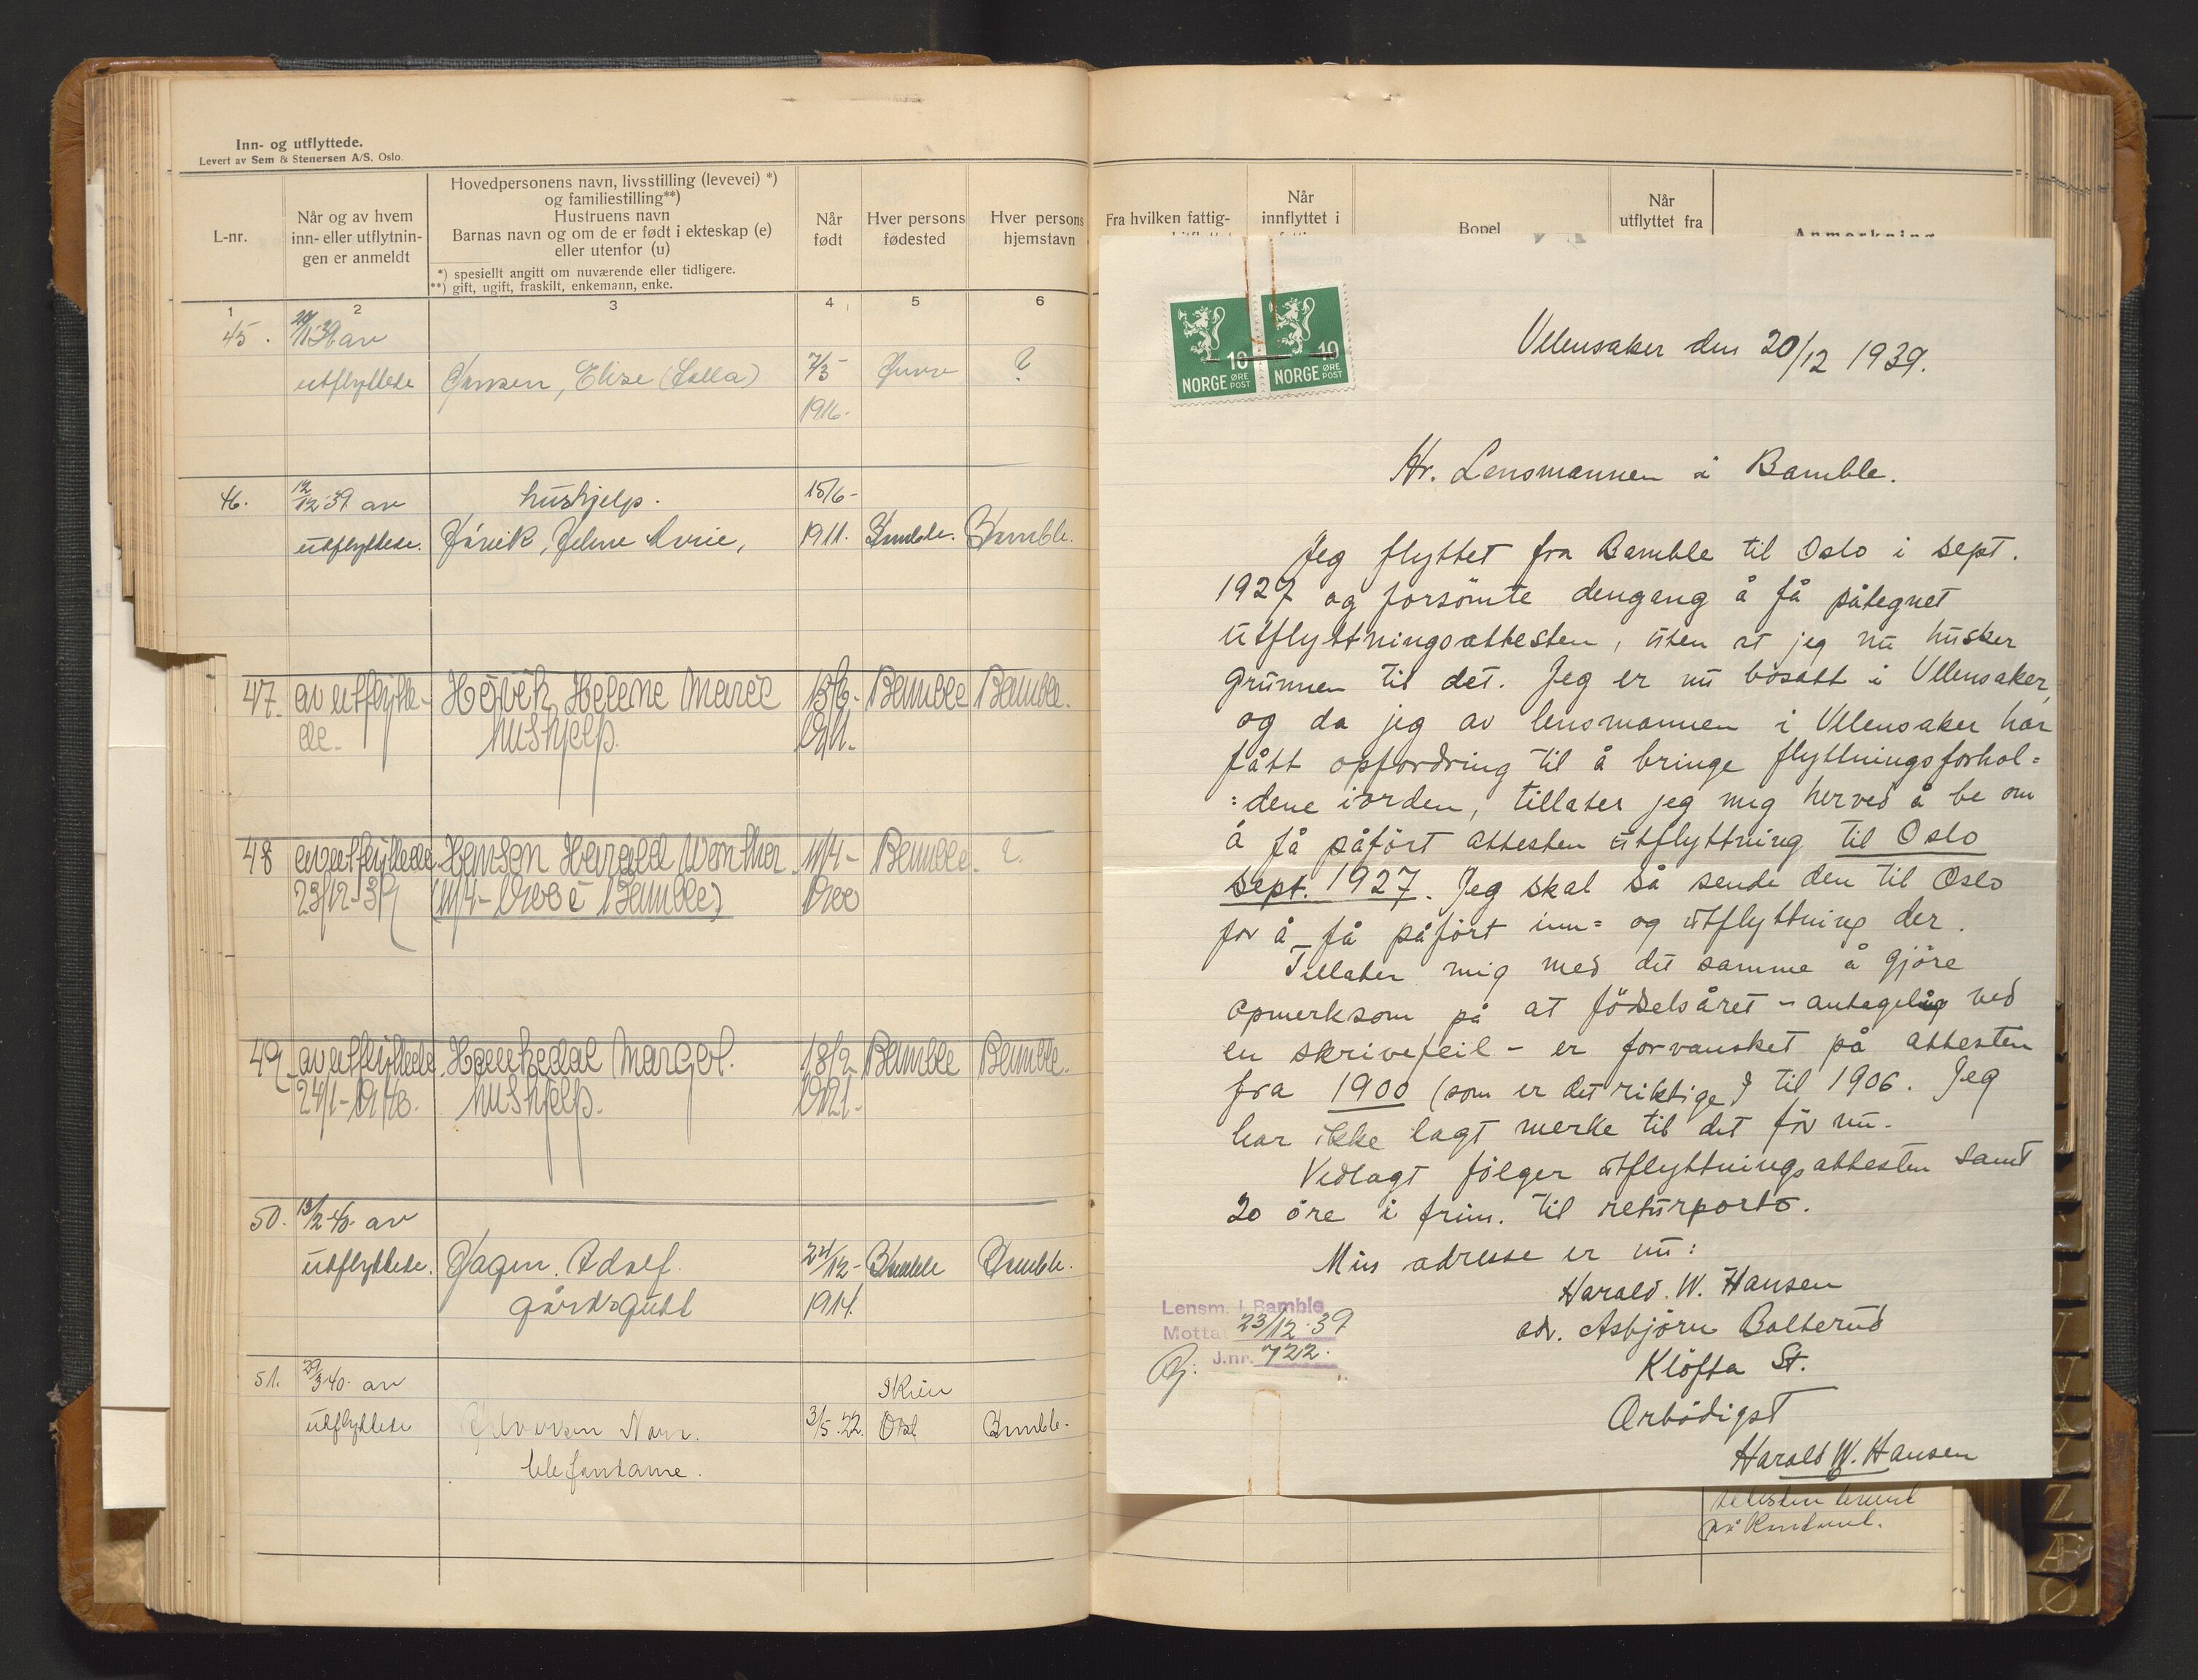 Inn- og utflyttede.
Levert av Sem & Stenersen A/S. Oslo.
L-nr.
Når og av hvem
inn- eller utflytnin-
gen er anmeldt
Hovedpersonens navn, livsstilling (levevei) *)
og familiestilling**)
Hustruens navn
Barnas navn og om de er født i ekteskap (e)
eller utenfor (u)
*) spesiellt angitt om nuværende eller tidligere.
**) gift, ugift, fraskilt, enkemann, enke.
Når
født
Hver persons
fødested
Hver persons
hjemstavn
1 2 3 4 5 6
45. 39 av
utflyttede Hansen, Elise 7/5 ?
1916.
46. 12/12 39 av hushjelp. 15/6-
utflyttede. 1911. Bamble. Bamble.
47. av utflytte- Høvik, Helene Marie 15/6- Bamble Bamble.
de. hushjelp. 1911.
48 av utflyttede Hansen Harald Werther 11/4- Bamble. ?.
23/12-39 (11/4-1900 i Bamble) 1900
49. av utflyttede Haukedal Margot. 18/2 Bamble Bamble.
24/1-1940. hushjelp. 1921.
50. 13/2 40. av
utflyttede. Hagen. Adolf. 24/12- Bamble Bamble.
gårdsgutt 1914.
51. 29/3 40. av Skien
utflyttede Halvorsen 3/5.22. Bamble.
telefondame.
Fra hvilken fattig-
Når
innflyttet i
Bopel
Når
utflyttet fra
Anmerkning
10 10
NORGE ØRE POST NORGE ØRE POST
Ullensaker den 20/12 1939.
Hr. Lensmannen i Bamble.
Jeg flyttet fra Bamble til Oslo i sept.
1927 og forsömte dengang å få påtegnet
utflyttningsattesten, uten at jeg nu husker
grunnen til det. Jeg er nu bosatt i Ullensaker,
og da jeg av lensmannen i Ullensaker har
fått opfordring til å bringe flyttningsforhol=
=dene iorden, tillater jeg mig herved å be om
å få påfört attesten utflyttning til Oslo
sept. 1927. Jeg skal så sende den til Oslo
for å få påfört inn= og utflyttning der.
Tillater mig med det samme å gjöre
opmerksom på at födselsåret - antagelig ved
en skrivefeil - er forvansket på attesten
fra 1900 (som er det riktige) til 1906. Jeg
har ikke lagt merke til det för nu.
Vedlagt fölger utflyttningsattesten samt
20 öre i frim. til returporto.
Min adresse er nu:
Harald. W. Hansen
adr. Asbjörn Bolterud
Klöfta St.
Ærbödigst
Harald W. Hansen
Lensm. i Bamble
Mottat 23/12-39
J.nr. 722.